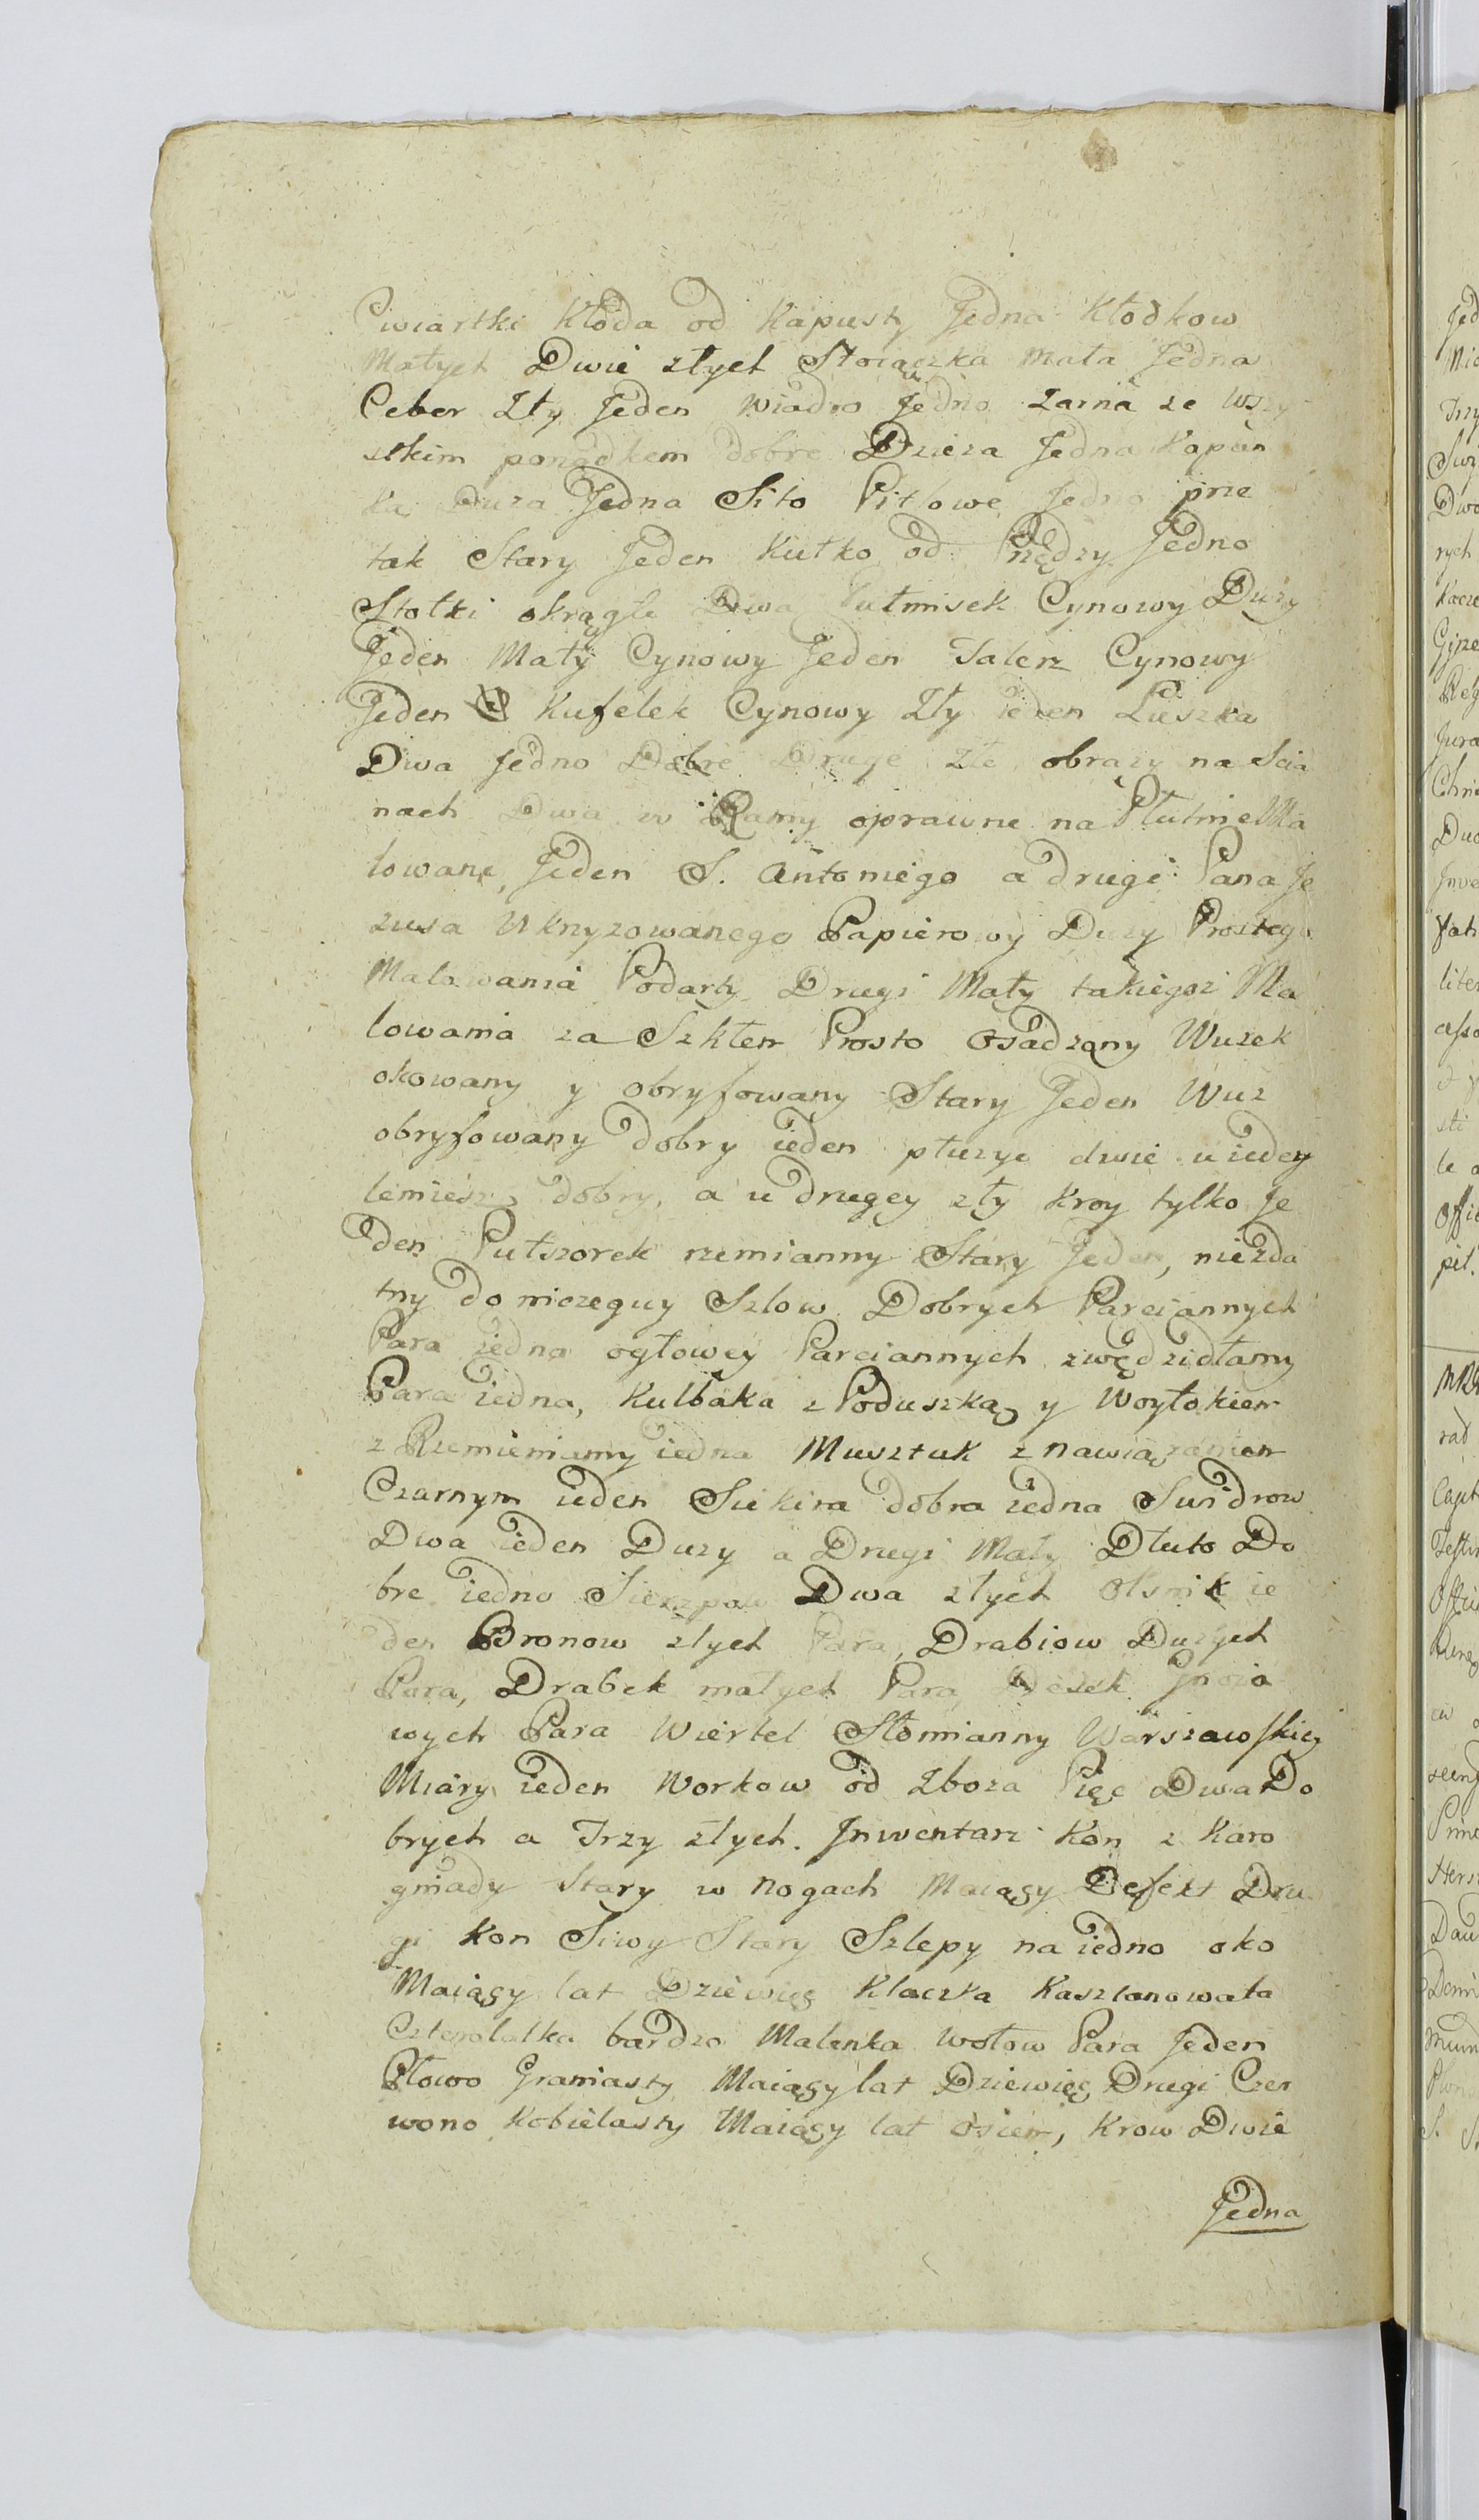 Cwiartki Kłoda od Kapusty Jedna Kłodkow
Małych Dwie złych Stoiączka mała Jedna
Ceber Zły Jeden Wiadro Jedno Zarna ze Wszy
stkim porządkem dobre Dzieza Jedna Kopan
ka Duza Jedna Sito Pitlowe Jedno prze
tak Stary Jeden Kułko od Przędzy Jedno
Stołki okrągłe Dwa Pułmisek Cynowy Duzy
Jeden Mały Cynowy Jeden Talerz Cynowy
Jeden Kufelek Cynowy Zły ieden Łuszka
Dwa Jedno Dobre Druge Złe obrazy na Scia
nach Dwa w Ramy oprawne na Płutnie Ma
lowane, Jeden S. Antoniego a drugi Pana Je
zusa Ukrzyzowanego Papierowy Duzy Prostego
Malowania Podarty Drugi Mały takiegoz Ma
lowania za Szkłem Prosto Osadzany Wuzek
okowany y obryfowany Stary Jeden Wuz
obryfowany dobry ieden płuzyc dwie u iedey
lemiesz dobry, a u drugey zły Kroy tylko Je
den Pułszorek rzemianny Stary Jeden, niezda
tny do niczeguy Szlow Dobrych Parciannych
Para iedna ogłowey Parciannych zwędzidłamy
Para iedna, Kulbaka z Poduszką y Woyłokiem
z Rzemieniamy iedna Musztuk z nawiązaniem
Czarnym ieden Siekira dobra iedna Swidrow
Dwa ieden Duzy a Drugi Mały Dłuto Do
bre iedno Sierzpow Dwa złych Osnik ie
den Bronow złych Para, Drabiow Duzych
Para, Drabek małych Para Desek Gnoia
wych Para Wiertel Słomianny Warszawskiey
Miary ieden Workow od Zboza Pięc Dwa Do
brych a Trzy złych. Inwentarz Kon z Karo
gniady Stary w Nogach Maiąsy Defekt Dru
gi Kon Siwy Stary Szlepy na iedno oko
Maiąsy lat Dziewięs Klaczka Kasztanowata
Czterolatka bardzo Malenka Wołow Para Jeden
Płowo Graniasty Maiąsy lat Dziewięs Drugi Czer
wono Kobielasty Maiąsy lat osiem, Krow Dwie
Jedna